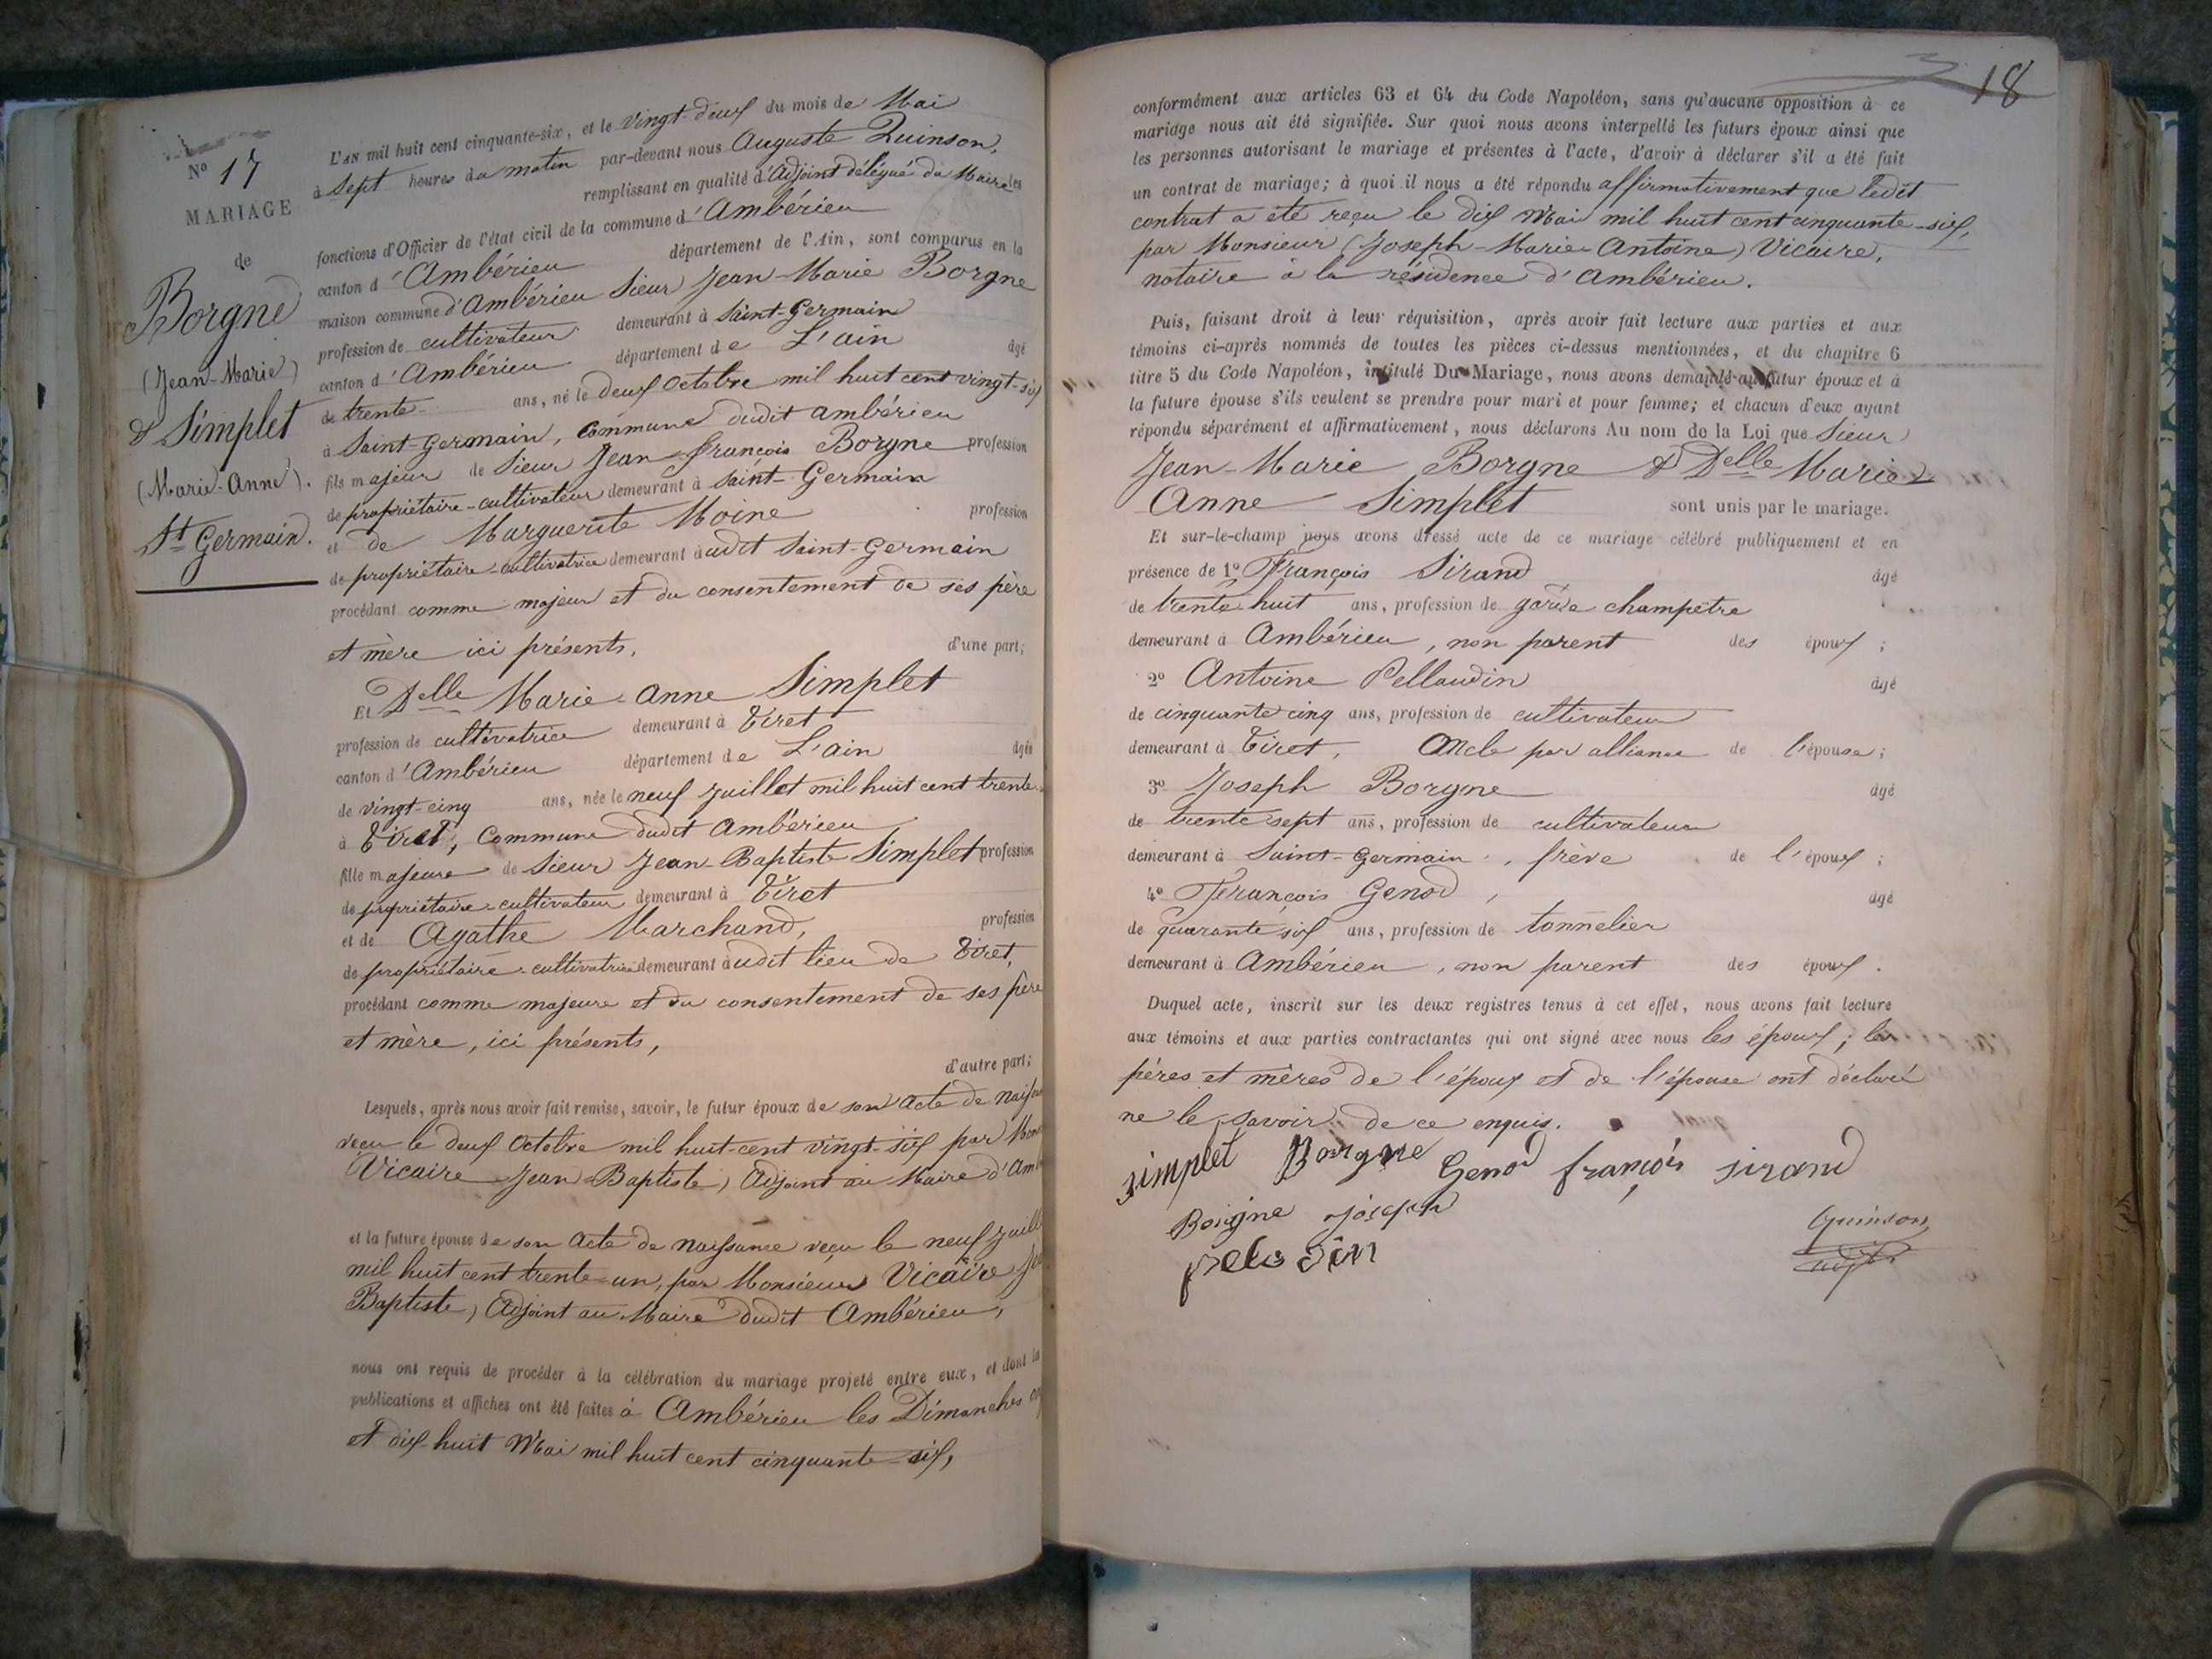 N° 17
MARIAGE
de
Borgne
(Jean-Marie)
& Simplet
(Marie-Anne).
St Germain.
L'AN mil huit cent cinquante-six, et le vingt-deux du mois de Mai
à sept heures du matin par-devant nous Auguste Quinson,
remplissant en qualité d'Adjoint délégué du Maire les
fonctions d'Officier de l'état civil de la commune d'Ambérieu
canton d'Ambérieu département de l'Ain, sont comparus en la
maison commune d'Ambérieu Sieur Jean-Marie Borgne
profession de cultivateur demeurant à Saint-Germain
canton d'Ambérieu département de L'ain âgé
de trente ans, né le deux Octobre mil huit cent vingt-six
à Saint-Germain, commune dudit ambérieu
fils majeur de Sieur Jean-françois Borgne profession
de propriétaire-cultivateur demeurant à Saint-Germain
et de Marguerite Moine profession
de propriétaire-cultivatrice demeurant audit Saint-Germain
procédant comme majeur et du consentement de ses père
et mère ici présents, d'une part;
Et Delle Marie-anne Simplet
profession de cultivatrice demeurant à Tiret
canton d'Ambérieu département de L'ain âgée
de vingt-cinq ans, née le neuf juillet mil huit cent trente
à Tiret, commune dudit Ambérieu
fille majeure de Sieur Jean-Baptiste Simplet profession
de propriétaire-cultivateur demeurant à Tiret
et de Agathe Marchand, profession
de propriétaire-cultivatrice demeurant audit lieu de Tiret,
procédant comme majeure et du consentement de ses père
et mère, ici présents,
d'autre part;
Lesquels, après nous avoir fait remise, savoir, le futur époux de son acte de naiss
reçu le deux Octobre mil huit-cent vingt-six par Mon
Vicaire Jean-Baptiste) Adjoint au Maire d'Am
et la future épouse de son acte de naissance reçu le neuf juill
mil huit cent trente-un, par Monsieur Vicaire
Baptiste) Adjoint au Maire dudit Ambérieu,
nous ont requis de procéder à la célébration du mariage projeté entre eux, et dont la
publications et affiches ont été faites à Ambérieu les Dimanches
et dix-huit Mai mil huit cent cinquante-six,
18
conformément aux articles 63 et 64 du Code Napoléon, sans qu'aucune opposition à ce
mariage nous ait été signifiée. Sur quoi nous avons interpellé les futurs époux ainsi que
les personnes autorisant le mariage et présentes à l'acte, d'avoir à déclarer s'il a été fait
un contrat de mariage; à quoi il nous a été répondu affirmativement que ledit
contrat a été reçu le dix Mai mil huit cent cinquante-six,
par Monsieur (Joseph-Marie-Antoine) Vicaire,
notaire à la résidence d'Ambérieu.
Puis, faisant droit à leur réquisition, après avoir fait lecture aux parties et aux
témoins ci-après nommés de toutes les pièces ci-dessus mentionnées, et du chapitre 6
titre 5 du Code Napoléon, intitulé Du Mariage, nous avons demandé au futur époux et à
la future épouse s'ils veulent se prendre pour mari et pour femme; et chacun d'eux ayant
répondu séparément et affirmativement, nous déclarons Au nom de la Loi que Sieur
Jean-Marie Borgne & Delle Marie
Anne Simplet sont unis par le mariage.
Et sur-le-champ nous avons dressé acte de ce mariage célébré publiquement et en
présence de 1° François Sirand âgé
de trente huit ans, profession de garde champêtre
demeurant à Ambérieu, non parent des époux ;
2° Antoine Pellaudin âgé
de cinquante cinq ans, profession de cultivateur
demeurant à Tiret, Oncle par alliance de l'épouse;
3° Joseph Borgne âgé
de trente sept ans, profession de cultivateur
demeurant à Saint-Germain, frère de l'époux ;
4° François Genod, âgé
de quarante six ans, profession de tonnelier
demeurant à Ambérieu, non parent des époux.
Duquel acte, inscrit sur les deux registres tenus à cet effet, nous avons fait lecture
aux témoins et aux parties contractantes qui ont signé avec nous les époux ; les
pères et mères de l'époux et de l'épouse ont déclaré
ne le savoir de ce enquis.
simplet Borgne Genod françois sirand
Borgne joseph Quinson
pelodin